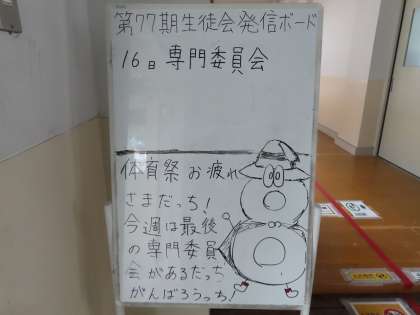 第77期生徒会発信ボード
16日 専門委員会
体育祭お疲れ
さまだっち!
今週は最後
の専門委員
会があるだっち
がんばろうっち!